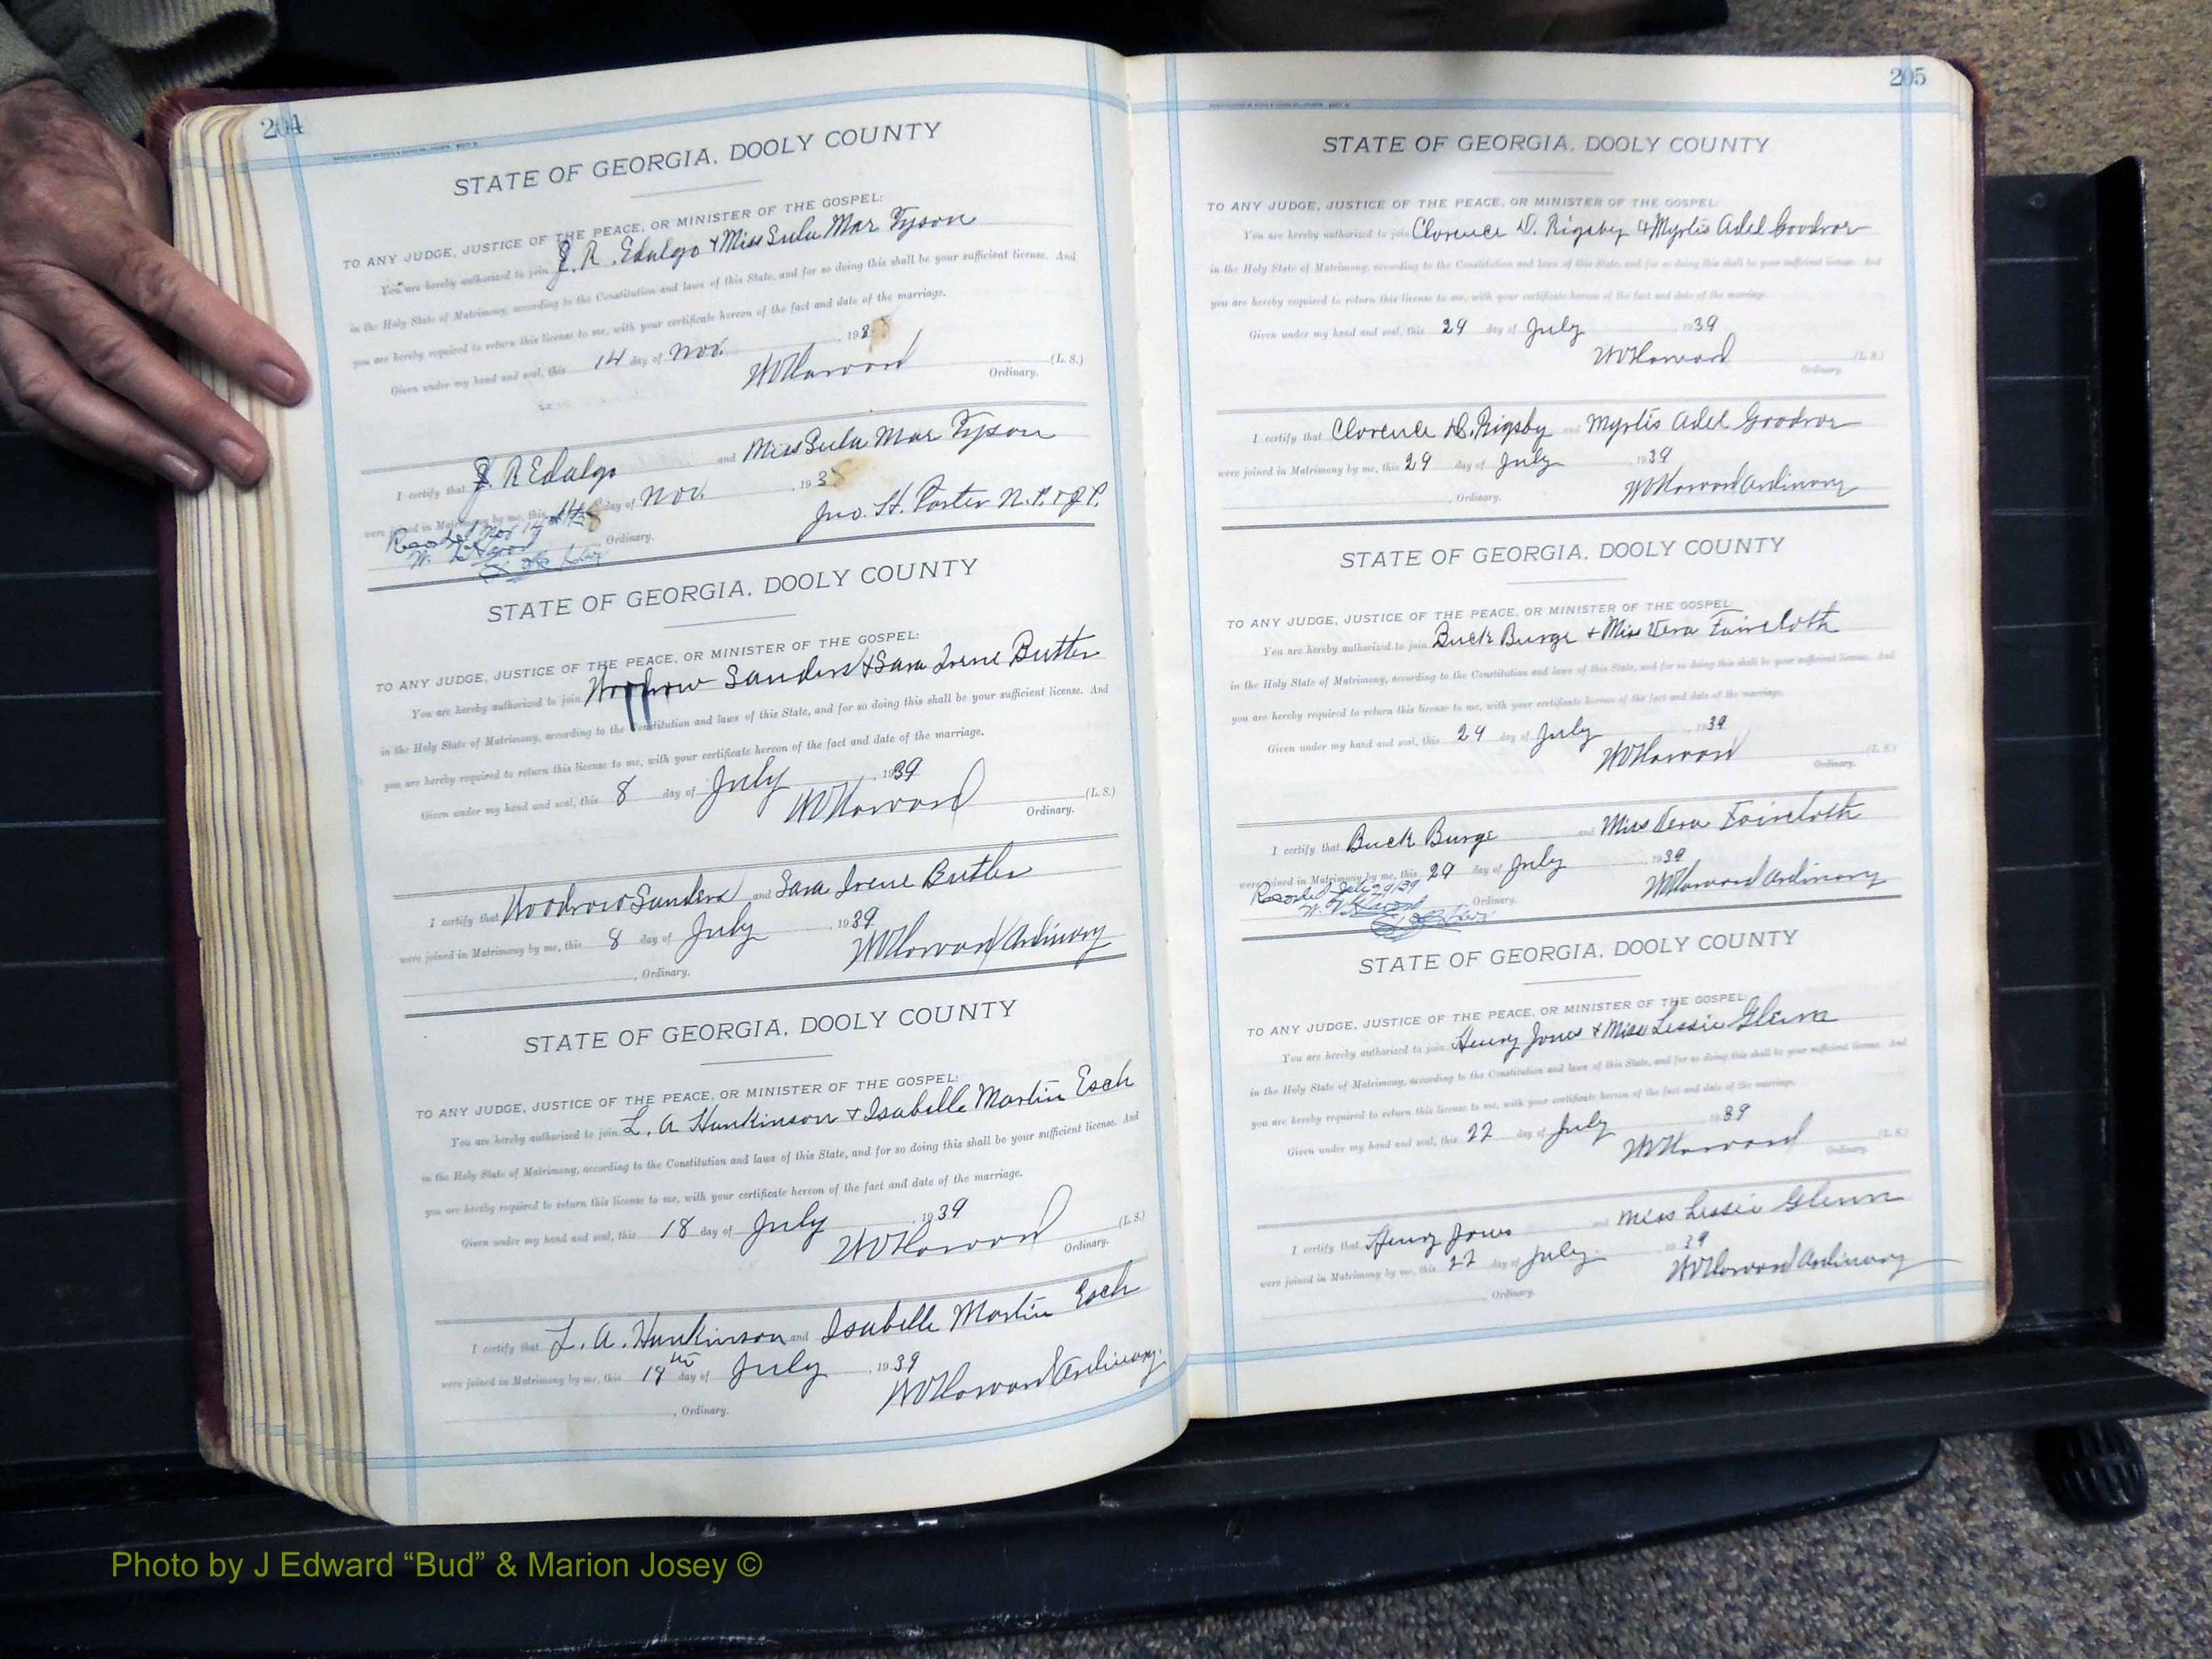 204
STATE OF GEORGIA, DOOLY COUNTY
TO ANY JUDGE, JUSTICE OF THE PEACE, OR MINISTER OF THE GOSPEL:
You are hereby authorized to join J. R. Edalgo & Miss Lula Mae Tyson
in the Holy State of Matrimony, according to the Constitution and laws of this State, and for so doing this shall be your sufficient license. And
you are hereby required to return this license to me, with your certificate hereon of the fact and date of the marriage.
Given under my hand and seal, this 14 day of Nov. 193
(L. S.)
Ordinary.
I certify that J. R Edalgo and Miss Lula Mae Tyson
were joined in Matrimony by me, this day of Nov. 193
Jno. H. Porter N.P. & J.P.
Recorded Nov 14
Ordinary.
STATE OF GEORGIA, DOOLY COUNTY
TO ANY JUDGE, JUSTICE OF THE PEACE, OR MINISTER OF THE GOSPEL:
You are hereby authorized to join Woodrow Sanders & Sara Irene Butler
in the Holy State of Matrimony, according to the Constitution and laws of this State, and for so doing this shall be your sufficient license. And
you are hereby required to return this license to me, with your certificate hereon of the fact and date of the marriage.
Given under my hand and seal, this 8 day of July 1939
(L. S.)
Ordinary.
I certify that Woodrow Sanders and Sara Irene Butler
were joined in Matrimony by me, this 8 day of July, 1939
Ordinary
, Ordinary.
STATE OF GEORGIA, DOOLY COUNTY
TO ANY JUDGE, JUSTICE OF THE PEACE, OR MINISTER OF THE GOSPEL:
You are hereby authorized to join L. A Hunkinson & Isabelle Martin Esch
in the Holy State of Matrimony, according to the Constitution and laws of this State, and for so doing this shall be your sufficient license. And
you are hereby required to return this license to me, with your certificate hereon of the fact and date of the marriage.
Given under my hand and seal, this 18 day of July, 1939
(L. S.)
Ordinary.
I certify that L. A. Hunkinson and Isabelle Martin Esch
were joined in Matrimony by me, this 18th day of July, 1939
Ordinary.
, Ordinary.
205
STATE OF GEORGIA, DOOLY COUNTY
TO ANY JUDGE, JUSTICE OF THE PEACE, OR MINISTER OF THE GOSPEL:
You are hereby authorized to join Clarence D. Rigsby & Myrtis Adel
in the Holy State of Matrimony, according to the Constitution and laws of this State, and for so doing this shall be your sufficient license. And
you are hereby required to return this license to me, with your certificate hereon of the fact and date of the marriage.
Given under my hand and seal, this 29 day of July 1939
(L. S.)
Ordinary.
I certify that Clarence D. Rigsby and Myrtis Adel
were joined in Matrimony by me, this 29 day of July 1939
Ordinary
, Ordinary.
STATE OF GEORGIA, DOOLY COUNTY
TO ANY JUDGE, JUSTICE OF THE PEACE, OR MINISTER OF THE GOSPEL:
You are hereby authorized to join Buck Burge & Miss Vera Faircloth
in the Holy State of Matrimony, according to the Constitution and laws of this State, and for so doing this shall be your sufficient license. And
you are hereby required to return this license to me, with your certificate hereon of the fact and date of the marriage.
Given under my hand and seal, this 29 day of July 1939
(L. S.)
Ordinary.
I certify that Buck Burge and Miss Vera Faircloth
were joined in Matrimony by me, this 29 day of July, 1939
Ordinary
Recorded July 29/39
Ordinary.
STATE OF GEORGIA, DOOLY COUNTY
TO ANY JUDGE, JUSTICE OF THE PEACE, OR MINISTER OF THE GOSPEL:
You are hereby authorized to join Henry Jones & Miss Lessie Glenn
in the Holy State of Matrimony, according to the Constitution and laws of this State, and for so doing this shall be your sufficient license. And
you are hereby required to return this license to me, with your certificate hereon of the fact and date of the marriage.
Given under my hand and seal, this 22 day of July 1939
(L. S.)
Ordinary.
I certify that Henry Jones and Miss Lessie Glenn
were joined in Matrimony by me, this 22 day of July 1939
Ordinary
, Ordinary.
Photo by J Edward “Bud” & Marion Josey ©